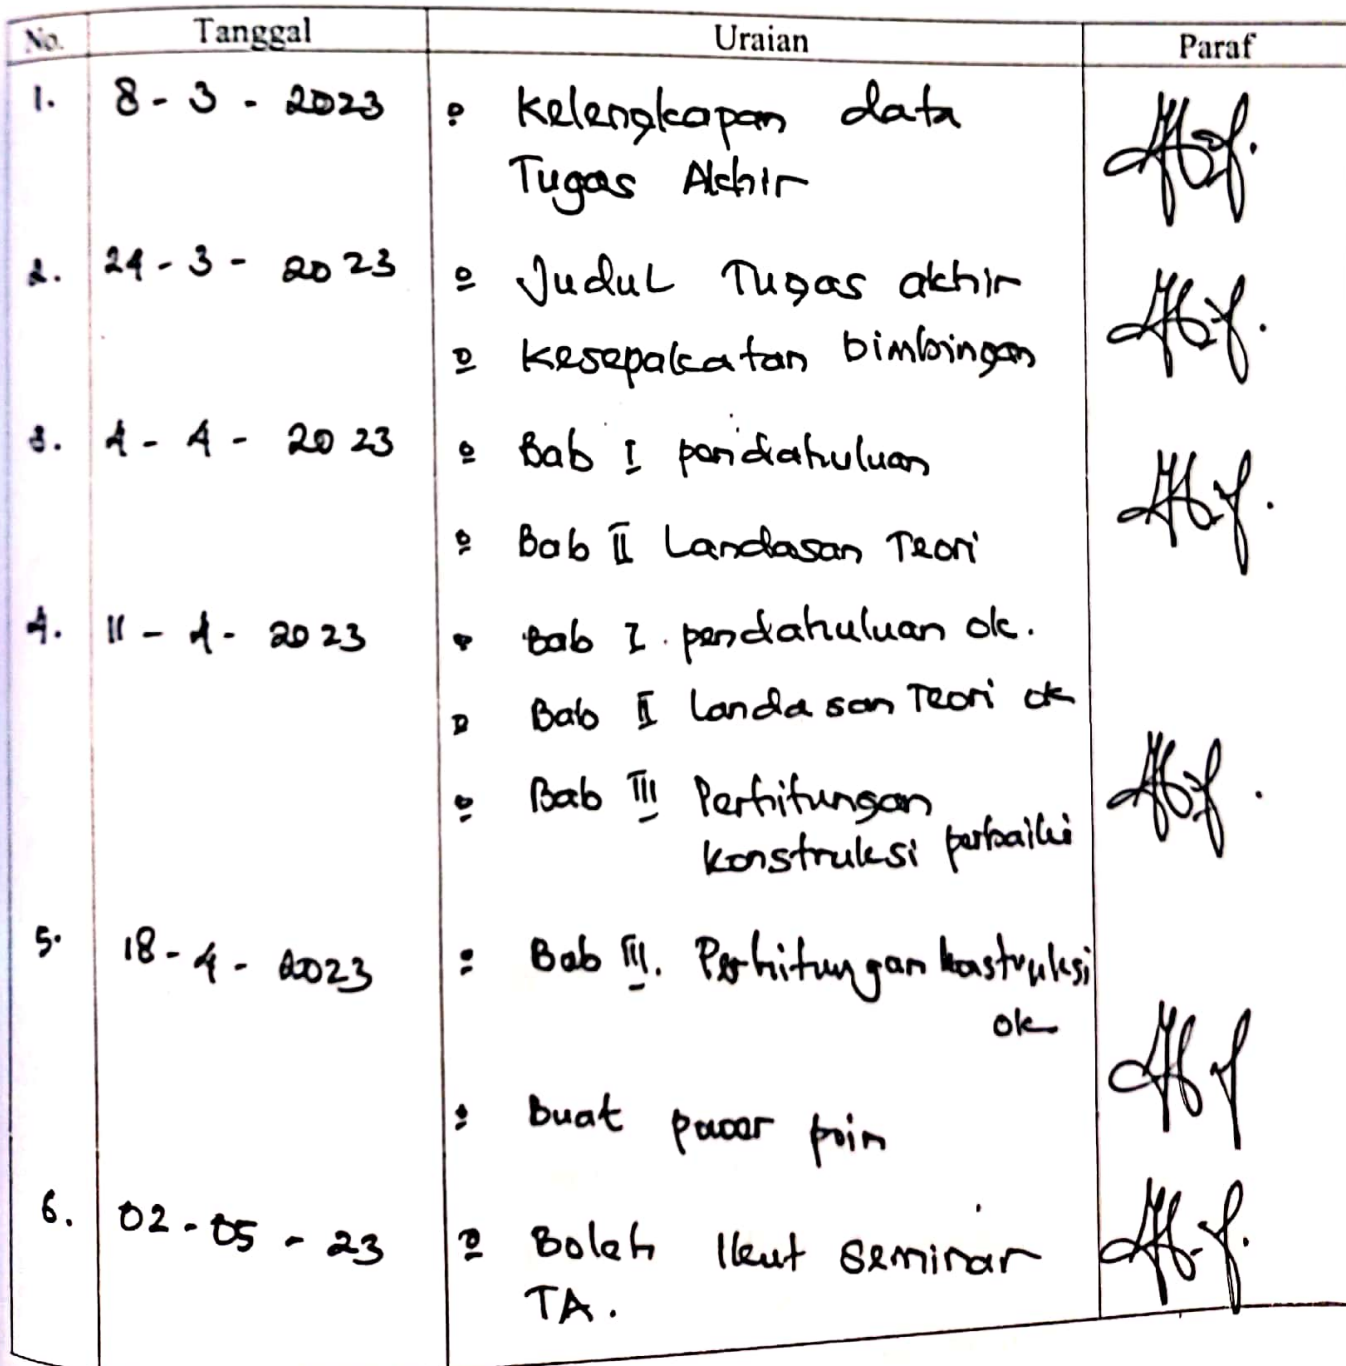 No. Tanggal Uraian Paraf
1. 8 - 3 - 2023 Kelengkapan data
Tugas Akhir
2. 24 - 3 - 2023 Judul Tugas akhir
Kesepakatan bimbingan
3. 4 - 4 - 2023 Bab I pendahuluan
Bab II Landasan Teori
4. 11 - 4 - 2023 Bab I. pendahuluan ok.
Bab II Landasan Teori ok
Bab III Perhitungan
konstruksi perbaiki
5. 18 - 4 - 2023 Bab III. Perhitungan konstruksi
ok
Buat power poin
6. 02 - 05 - 23 Boleh Ikut seminar
TA.